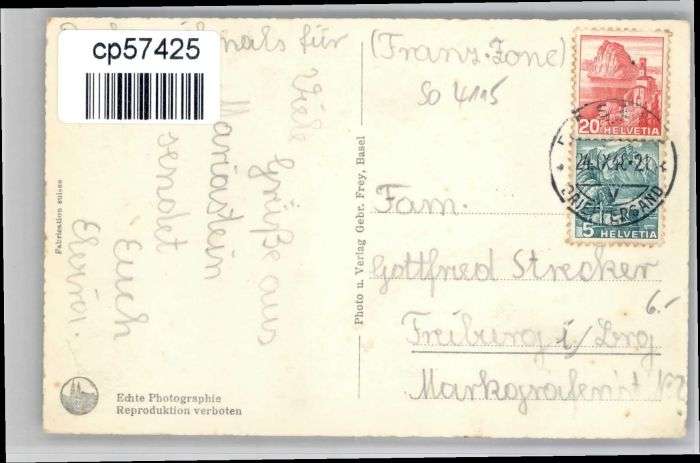 cp57425
für
Viele Grüße aus
Mariastein
sendet
Euch
(Franz. Zone)
So 4115
20 HELVETIA
24.IX.48-21
BRIEFVERSAND
5 HELVETIA
Fam.
Gottfried Strecker
6.-
Freiburg i/Brg
Fabrication suisse
Photo u. Verlag Gebr. Frey, Basel
Echte Photographie
Reproduktion verboten